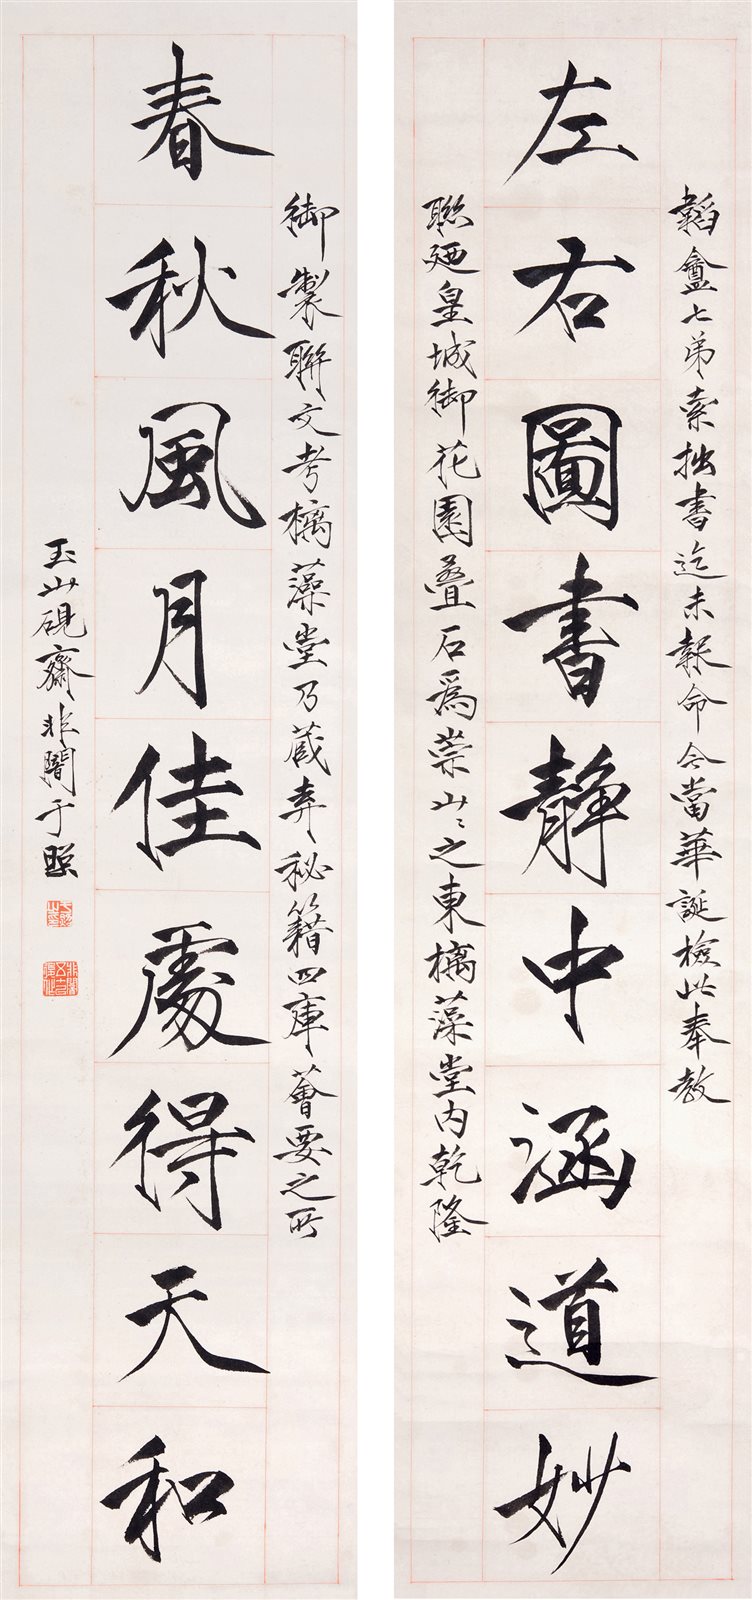 韜盦七弟索拙書迄未報命今當華誕檢此奉教
左右圖書靜中涵道妙
聯廼皇城御花園叠石爲崇山山之東樆藻堂內乾隆
御製聯文考樆藻堂乃藏弆秘籍四庫薈要之所
春秋風月佳處得天和
玉山硯齋非闇于照